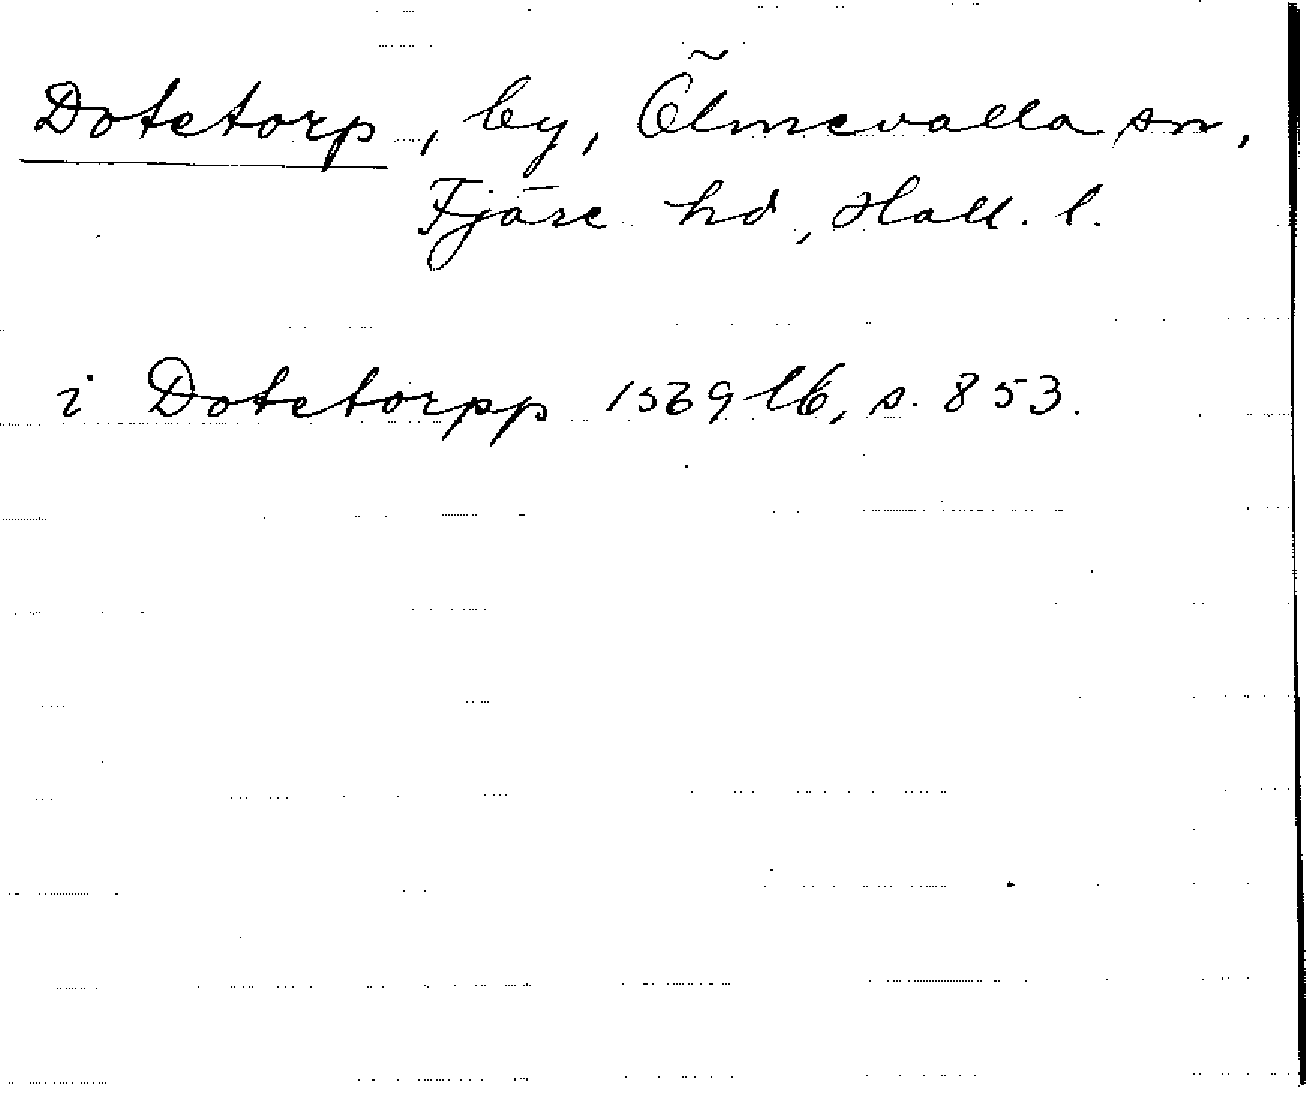 Dotetorp, by, Ölmevalla sn,
Fjäre hd, Hall. l.
i Dotetorpp 1569 lb, s. 853.